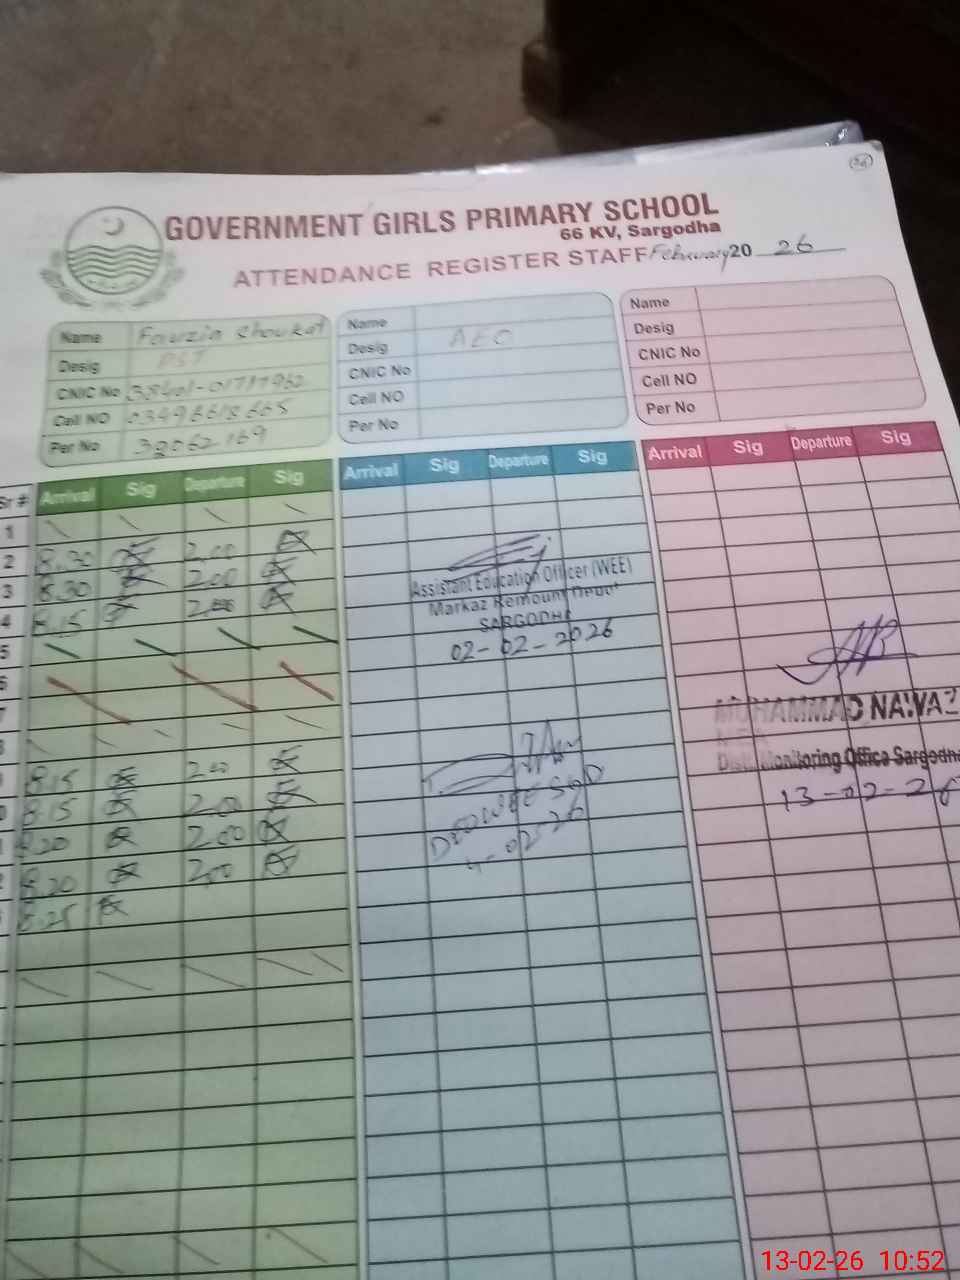 26
GOVERNMENT GIRLS PRIMARY SCHOOL
66 KV, Sargodha
ATTENDANCE REGISTER STAFF February 20 26
Name Fouzia Shoukat
Desig PST
CNIC No
Cell NO 03496618605
Per No 38062169
Name
Desig AEO
CNIC No
Cell NO
Per No
Name
Desig
CNIC No
Cell NO
Per No
Sr # Arrival Sig Departure Sig Arrival Sig Departure Sig Arrival Sig Departure Sig
1
2 8.30 2.00
3 8.30 2.00
4 8.15 2.00
5
6
7
8
8.15 2.00
8.15 2.00
8.20 2.00
8.20 2.00
8.25
Assistant Education Officer (WEE)
Markaz Remount Depot
SARGODHA
02-02-2026
DEO WEE SGD
02-26
MUHAMMAD NAWAZ
Distt. Monitoring Office Sargodha
13-02-26
13-02-26 10:52